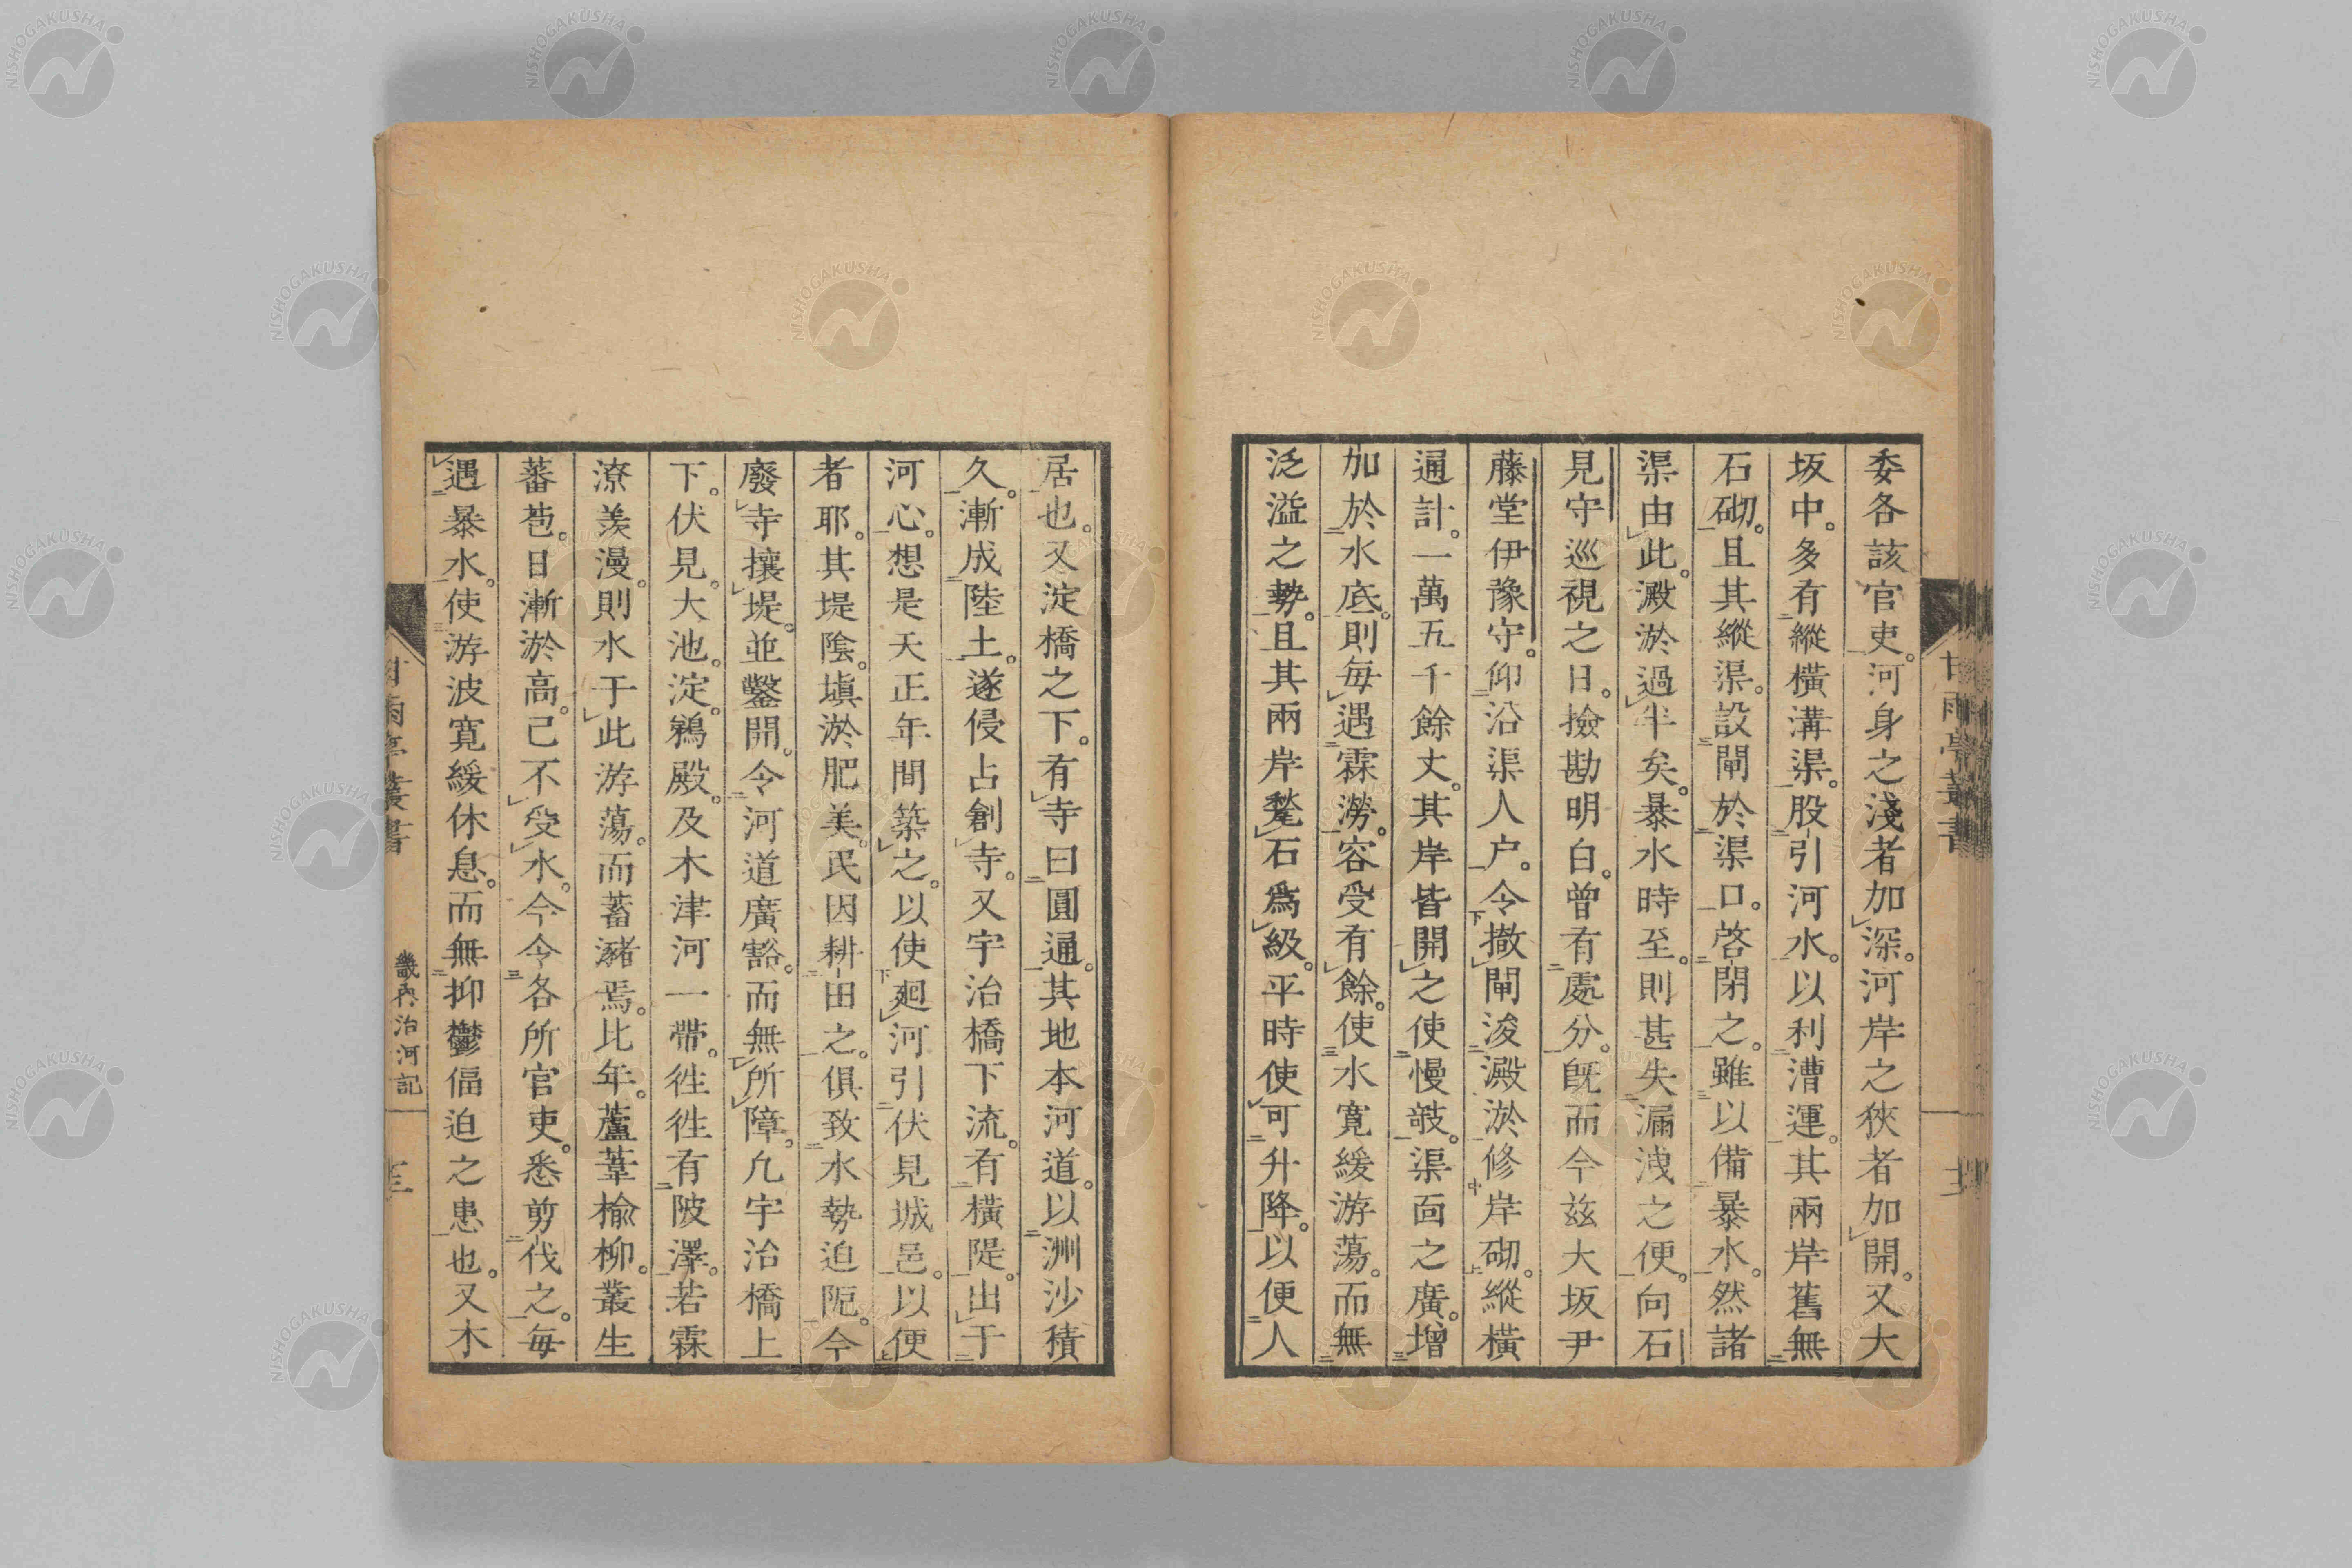 委各該官吏。河身之淺者加深。河岸之狹者加開。又大
坂中。多有縱橫溝渠。股引河水。以利漕運。其兩岸舊無
石砌。且其縱渠。設閘於渠口。啓閉之。雖以備暴水。然諸
渠由此。澱淤過半矣。暴水時至。則甚失漏洩之便。向石
見守巡視之日。撿勘明白。曾有處分。旣而今兹大坂尹
藤堂伊豫守。仰沿渠人户。令撤閘浚澱淤修岸砌。縱橫
通計。一萬五千餘丈。其岸皆開之使慢皷。渠面之廣。增
加於水底。則每遇霖澇。容受有餘。使水寬緩游蕩。而無
泛溢之勢。且其兩岸甃石爲級。平時使可升降。以便人
甘雨亭叢書
居也。又淀橋之下。有寺曰圓通。其地本河道。以洲沙積
久。漸成陸土。遂侵占創寺。又宇治橋下流。有橫隄。出于
河心。想是天正年間築之。以使廻河引伏見城邑。以便
者耶。其堤陰。塡淤肥美。民因耕田之。俱致水勢迫阨。今
廢寺攘堤。並鑿開。令河道廣豁。而無所障。凢宇治橋上
下。伏見。大池。淀。鵜殿。及木津河一帶。徃徃有陂澤。若霖
潦羨漫。則水于此游蕩。而蓄瀦焉。比年。蘆葦楡柳。叢生
蕃苞。日漸淤高。已不受水。今令各所官吏。悉剪伐之。每
遇暴水。使游波寬緩休息。而無抑鬱偪迫之患也。又木
甘雨亭叢書
畿內治河記
NISHOGAKUSHA